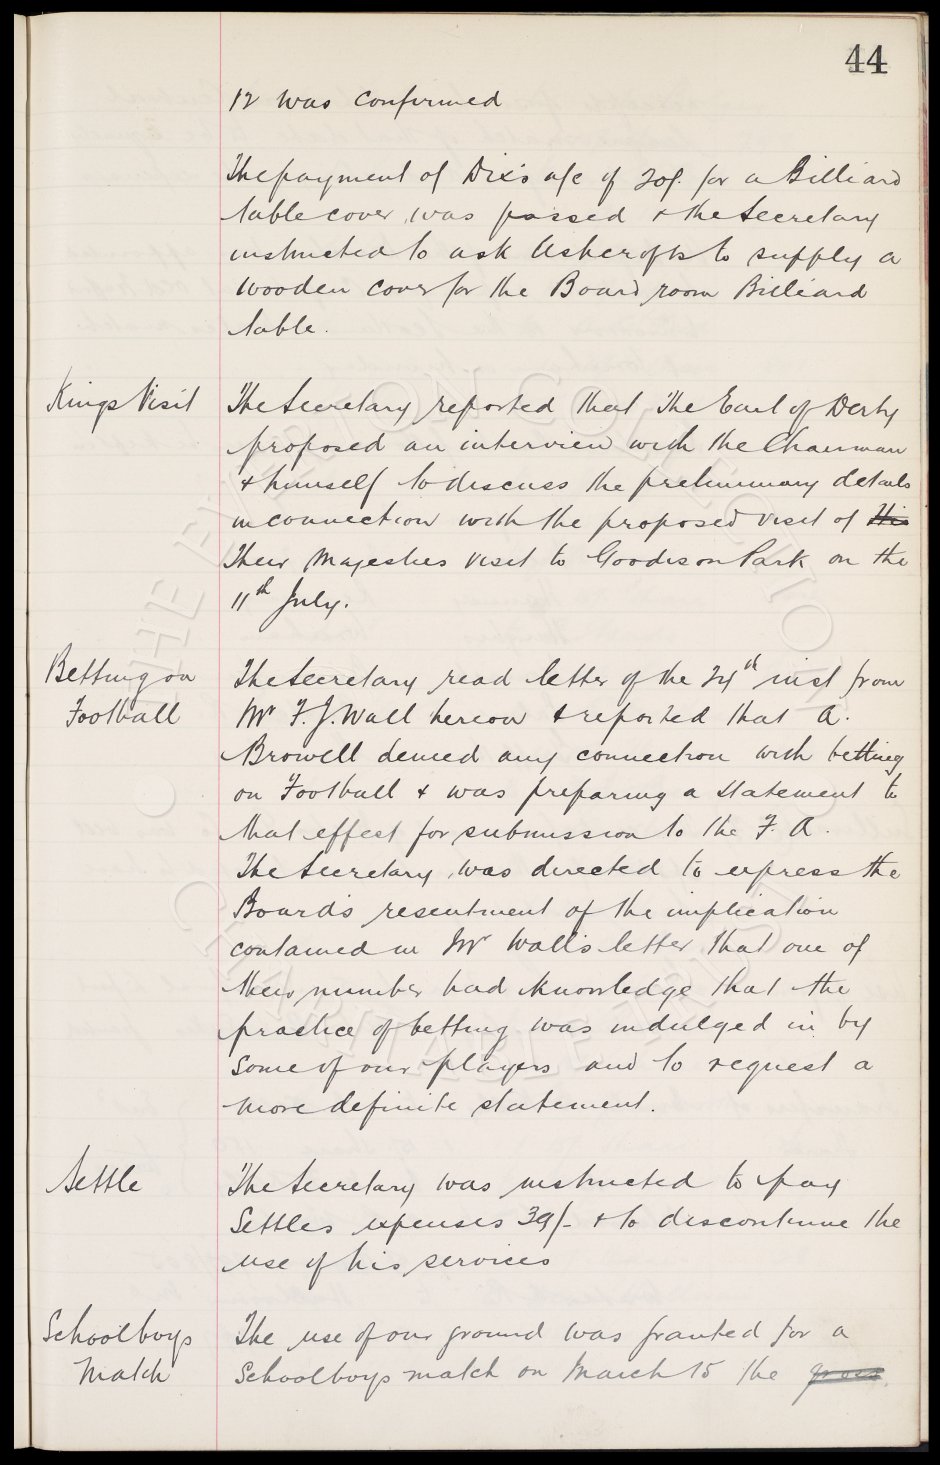 44
12 was confirmed
The payment of Dix's a/c of 20/. for a Billiard
table cover was passed & the Secretary
instructed to ask Ashcrofts to supply a
wooden cover for the Board room Billiard
table.
Kings Visit
The Secretary reported that The Earl of Derby
proposed an interview with the Chairman
& himself to discuss the preliminary details
in connection with the proposed visit of His
Their Majesties visit to Goodison Park on the
11th July.
Betting on
Football
The Secretary read letter of the 24th inst from
Mr F. J. Wall hereon & reported that A.
Browell denied any connection with betting
on Football & was preparing a statement to
that effect for submission to the F. A.
The Secretary was directed to express the
Board's resentment of the implication
contained in Mr Wall's letter that one of
their number had knowledge that the
practice of betting was indulged in by
some of our players and to request a
more definite statement.
Settle
The Secretary was instructed to pay
Settles expenses 39/- & to discontinue the
use of his services
Schoolboys
Match
The use of our ground was granted for a
Schoolboys match on March 15 the gross
THE EVERTON COLLECTION